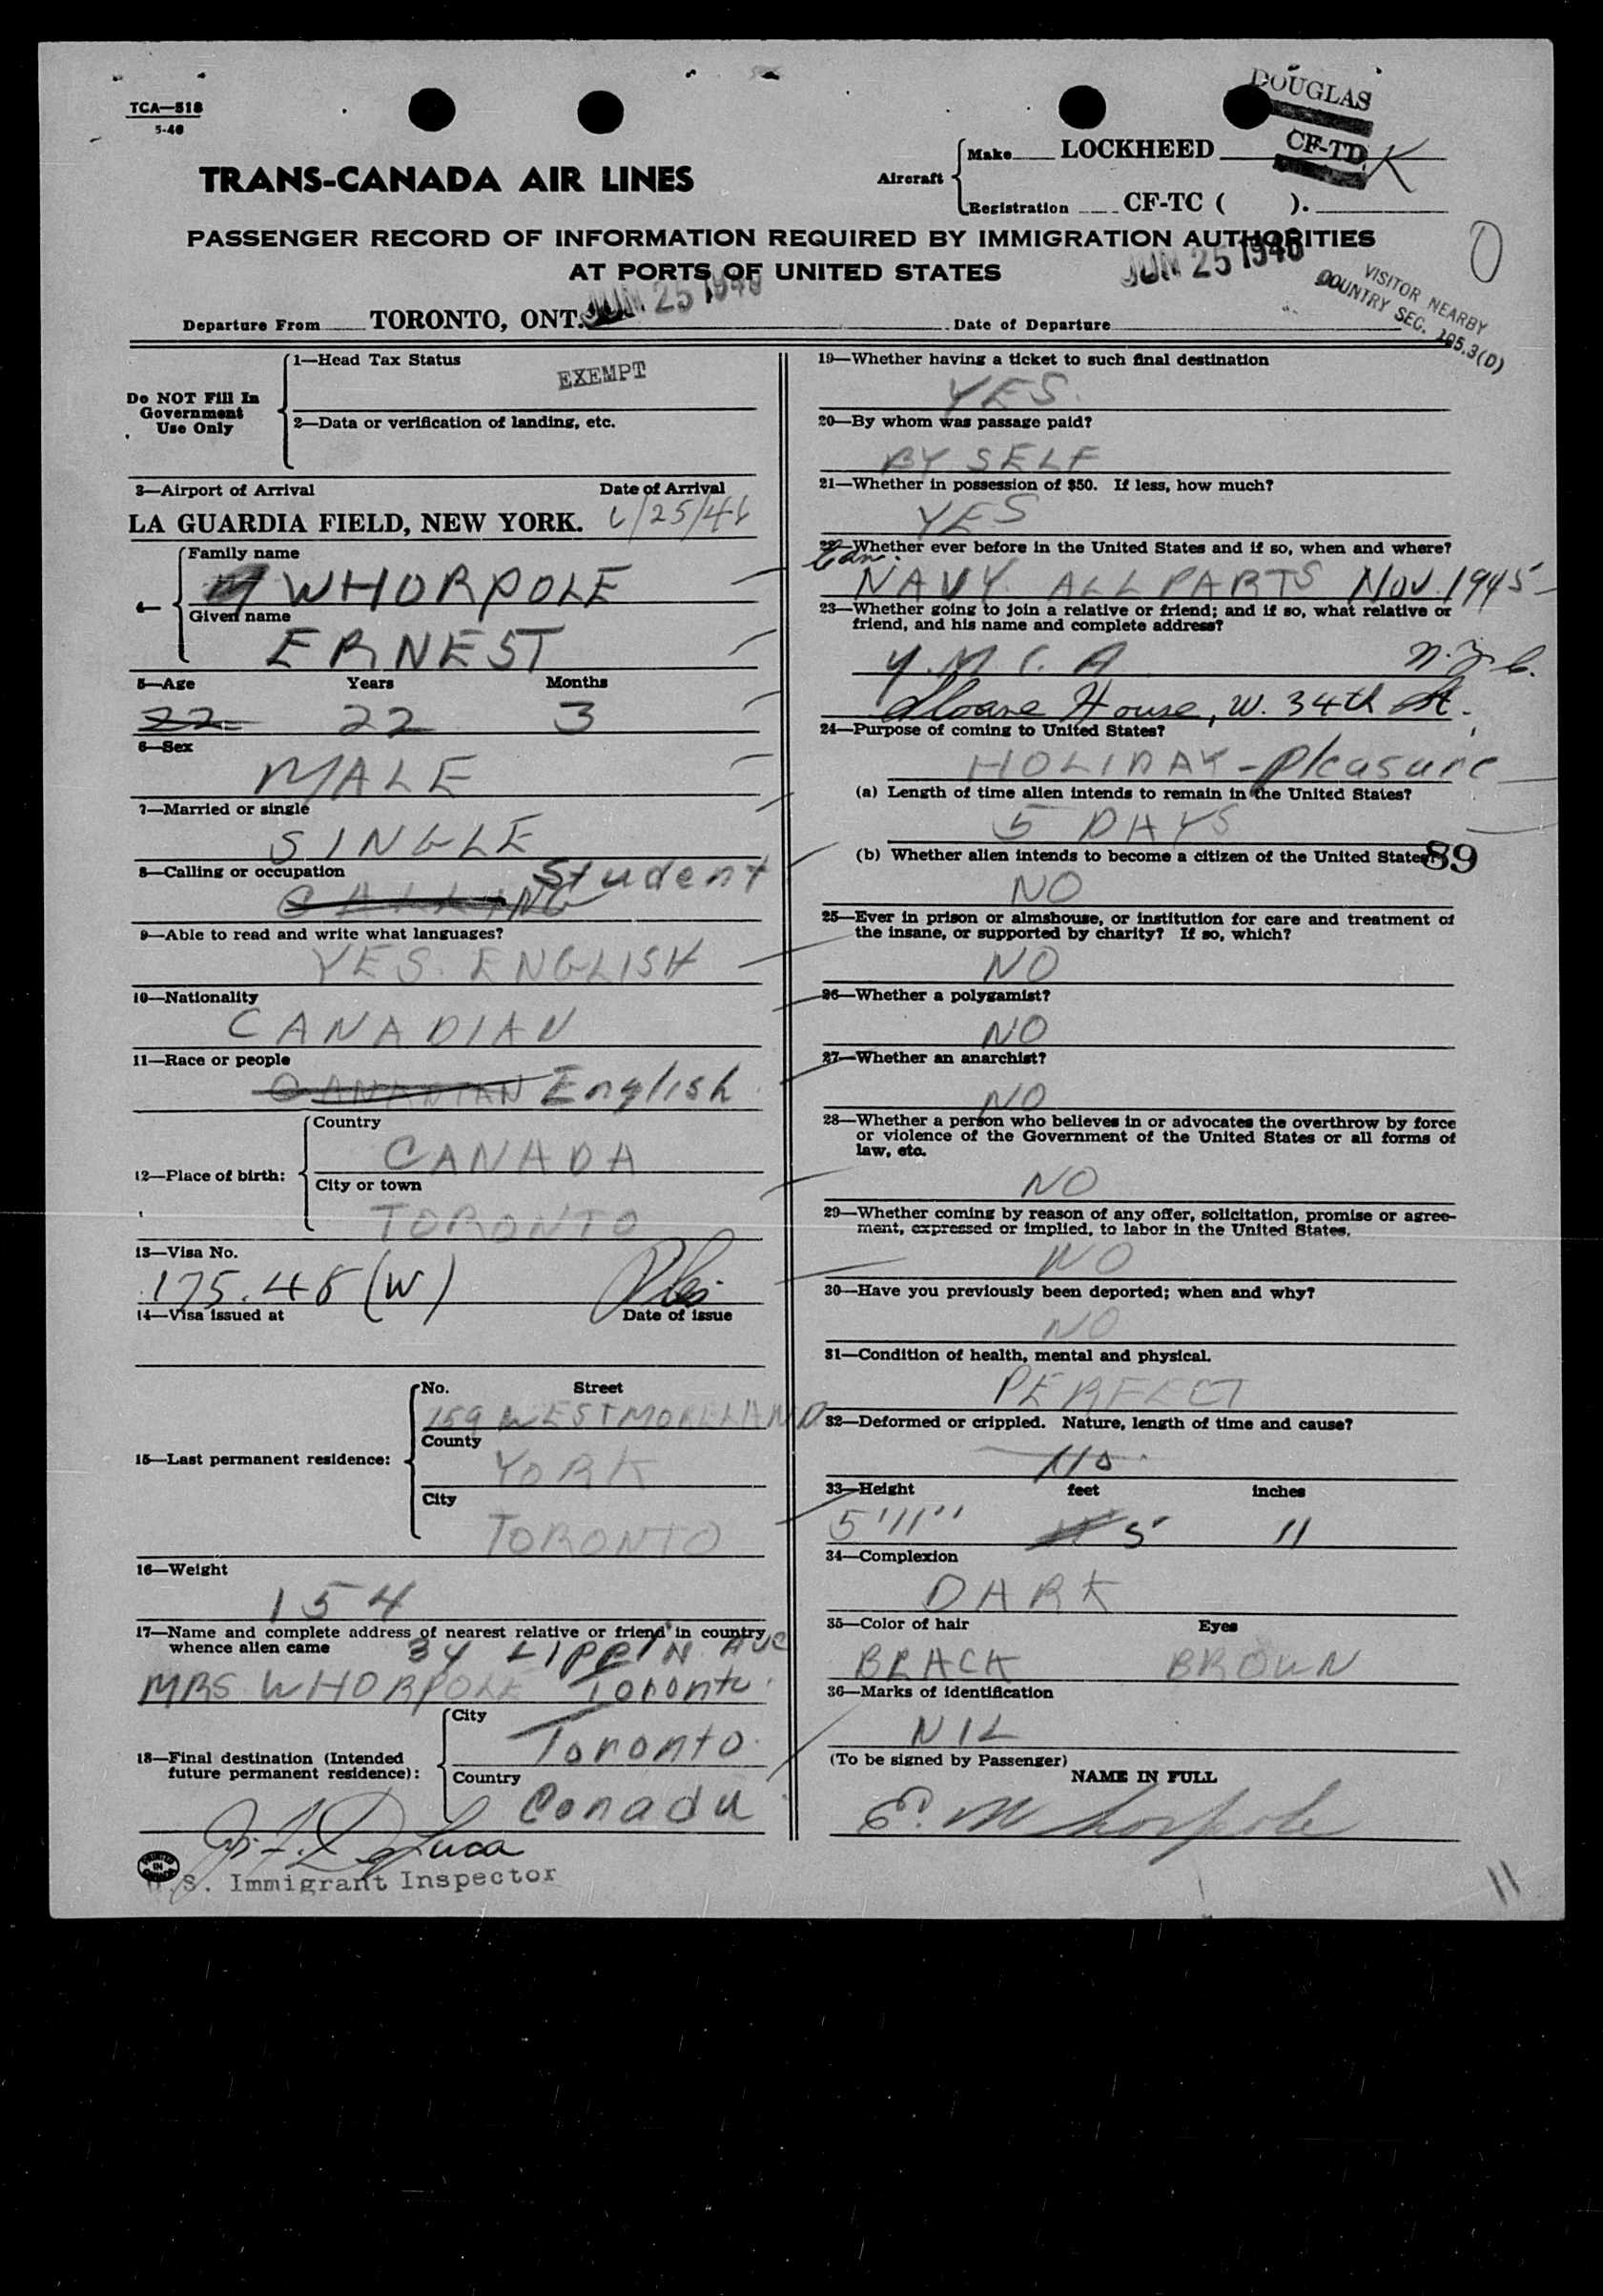 TCA—518
5-46
DOUGLAS
CF-TD K
TRANS-CANADA AIR LINES
Aircraft
Make LOCKHEED
Registration CF-TC ( ).
PASSENGER RECORD OF INFORMATION REQUIRED BY IMMIGRATION AUTHORITIES
AT PORTS OF UNITED STATES
JUN 25 1946
JUN 25 1946
O
VISITOR NEARBY
COUNTRY SEC. 195.3(D)
Departure From TORONTO, ONT. Date of Departure
Do NOT Fill In
Government
Use Only
1—Head Tax Status
EXEMPT
2—Data or verification of landing, etc.
3—Airport of Arrival Date of Arrival
LA GUARDIA FIELD, NEW YORK. 6/25/46
4—
Family name
WHORPOLE
Given name
ERNEST
5—Age Years Months
22 22 3
6—Sex
MALE
7—Married or single
SINGLE
8—Calling or occupation
Student
9—Able to read and write what languages?
YES. ENGLISH
10—Nationality
CANADIAN
11—Race or people
CANADIAN English
12—Place of birth:
Country
CANADA
City or town
TORONTO
13—Visa No.
175.45 (W)
14—Visa issued at Date of issue
15—Last permanent residence:
No. Street
159 WESTMORELAND
County
YORK
City
TORONTO
16—Weight
154
17—Name and complete address of nearest relative or friend in country
whence alien came
34 LIPPIN AVE
MRS WHORPOLE Toronto
18—Final destination (Intended
future permanent residence):
City
Toronto
Country
Canada
J. F. DeLuca
U.S. Immigrant Inspector
PRINTED IN CANADA
19—Whether having a ticket to such final destination
YES.
20—By whom was passage paid?
BY SELF
21—Whether in possession of $50. If less, how much?
YES
22—Whether ever before in the United States and if so, when and where?
Can.
NAVY. ALL PARTS NOV. 1945
23—Whether going to join a relative or friend; and if so, what relative or
friend, and his name and complete address?
Y.M.C.A N.Y.C.
Sloane House, W. 34th St.
24—Purpose of coming to United States?
HOLIDAY - pleasure
(a) Length of time alien intends to remain in the United States?
5 DAYS
(b) Whether alien intends to become a citizen of the United States?
89
NO
25—Ever in prison or almshouse, or institution for care and treatment of
the insane, or supported by charity? If so, which?
NO
26—Whether a polygamist?
NO
27—Whether an anarchist?
NO
28—Whether a person who believes in or advocates the overthrow by force
or violence of the Government of the United States or all forms of
law, etc.
NO
29—Whether coming by reason of any offer, solicitation, promise or agree-
ment, expressed or implied, to labor in the United States.
NO
30—Have you previously been deported; when and why?
NO
31—Condition of health, mental and physical.
PERFECT
32—Deformed or crippled. Nature, length of time and cause?
No.
33—Height feet inches
5'11'' 5 11
34—Complexion
DARK
35—Color of hair Eyes
BLACK BROWN
36—Marks of identification
NIL
(To be signed by Passenger)
NAME IN FULL
E. Whorpole
11